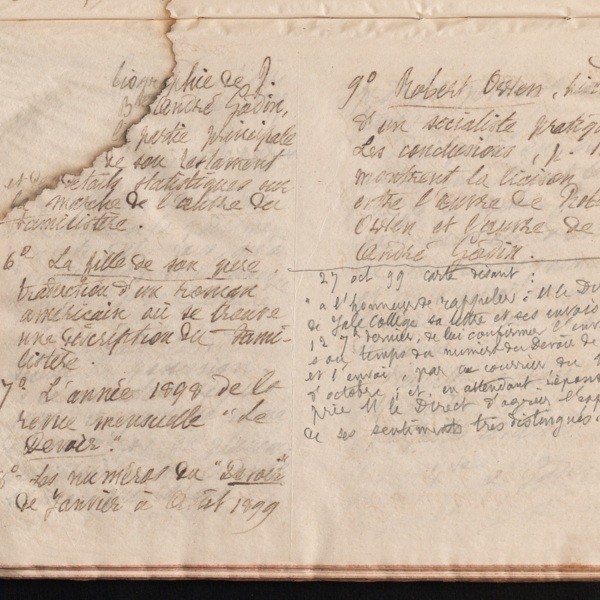 biographie de J.
Bte André Godin,
la partie principale
de son testament
et détails statistiques sur
la marche de l'œuvre du
Familistère.
6º La fille de son père,
traduction d'un roman
américain où se trouve
une description du Fami-
listère.
7º L'année 1898 de la
revue mensuelle "Le
Devoir".
8º Les numéros du "Devoir"
de Janvier à Août 1899
9º Robert Owen,
d'un socialiste pratiq
Les conclusions, p.
montrent la liaison
entre l'œuvre de Rob
Owen et l'œuvre de
André Godin.
27 oct 99 carte disant :
"a l'honneur de rappeler à M le Di
de Yale College sa lettre et ses envois
12 7bre dernier, de lui confirmer l'env
temps du numéro du Devoir de
et l'envoi, par ce courrier du
d'octobre ; et en attendant réponse
prie M le Direct d'agréer l'exp
de ses sentiments très distingués.